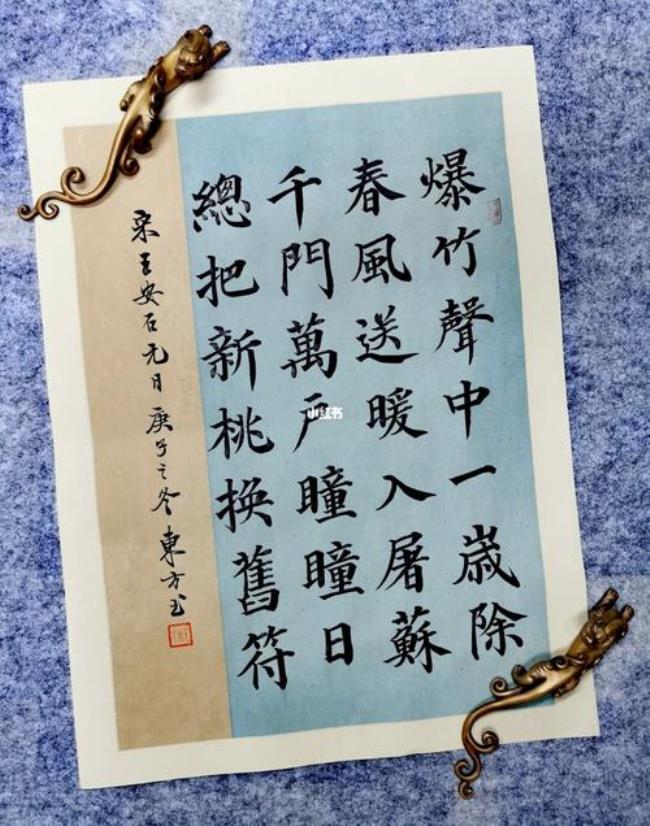 爆竹聲中一歲除
春風送暖入屠蘇
千門萬戶瞳瞳日
總把新桃換舊符
宋王安石元日庚子之冬東方書
小红书